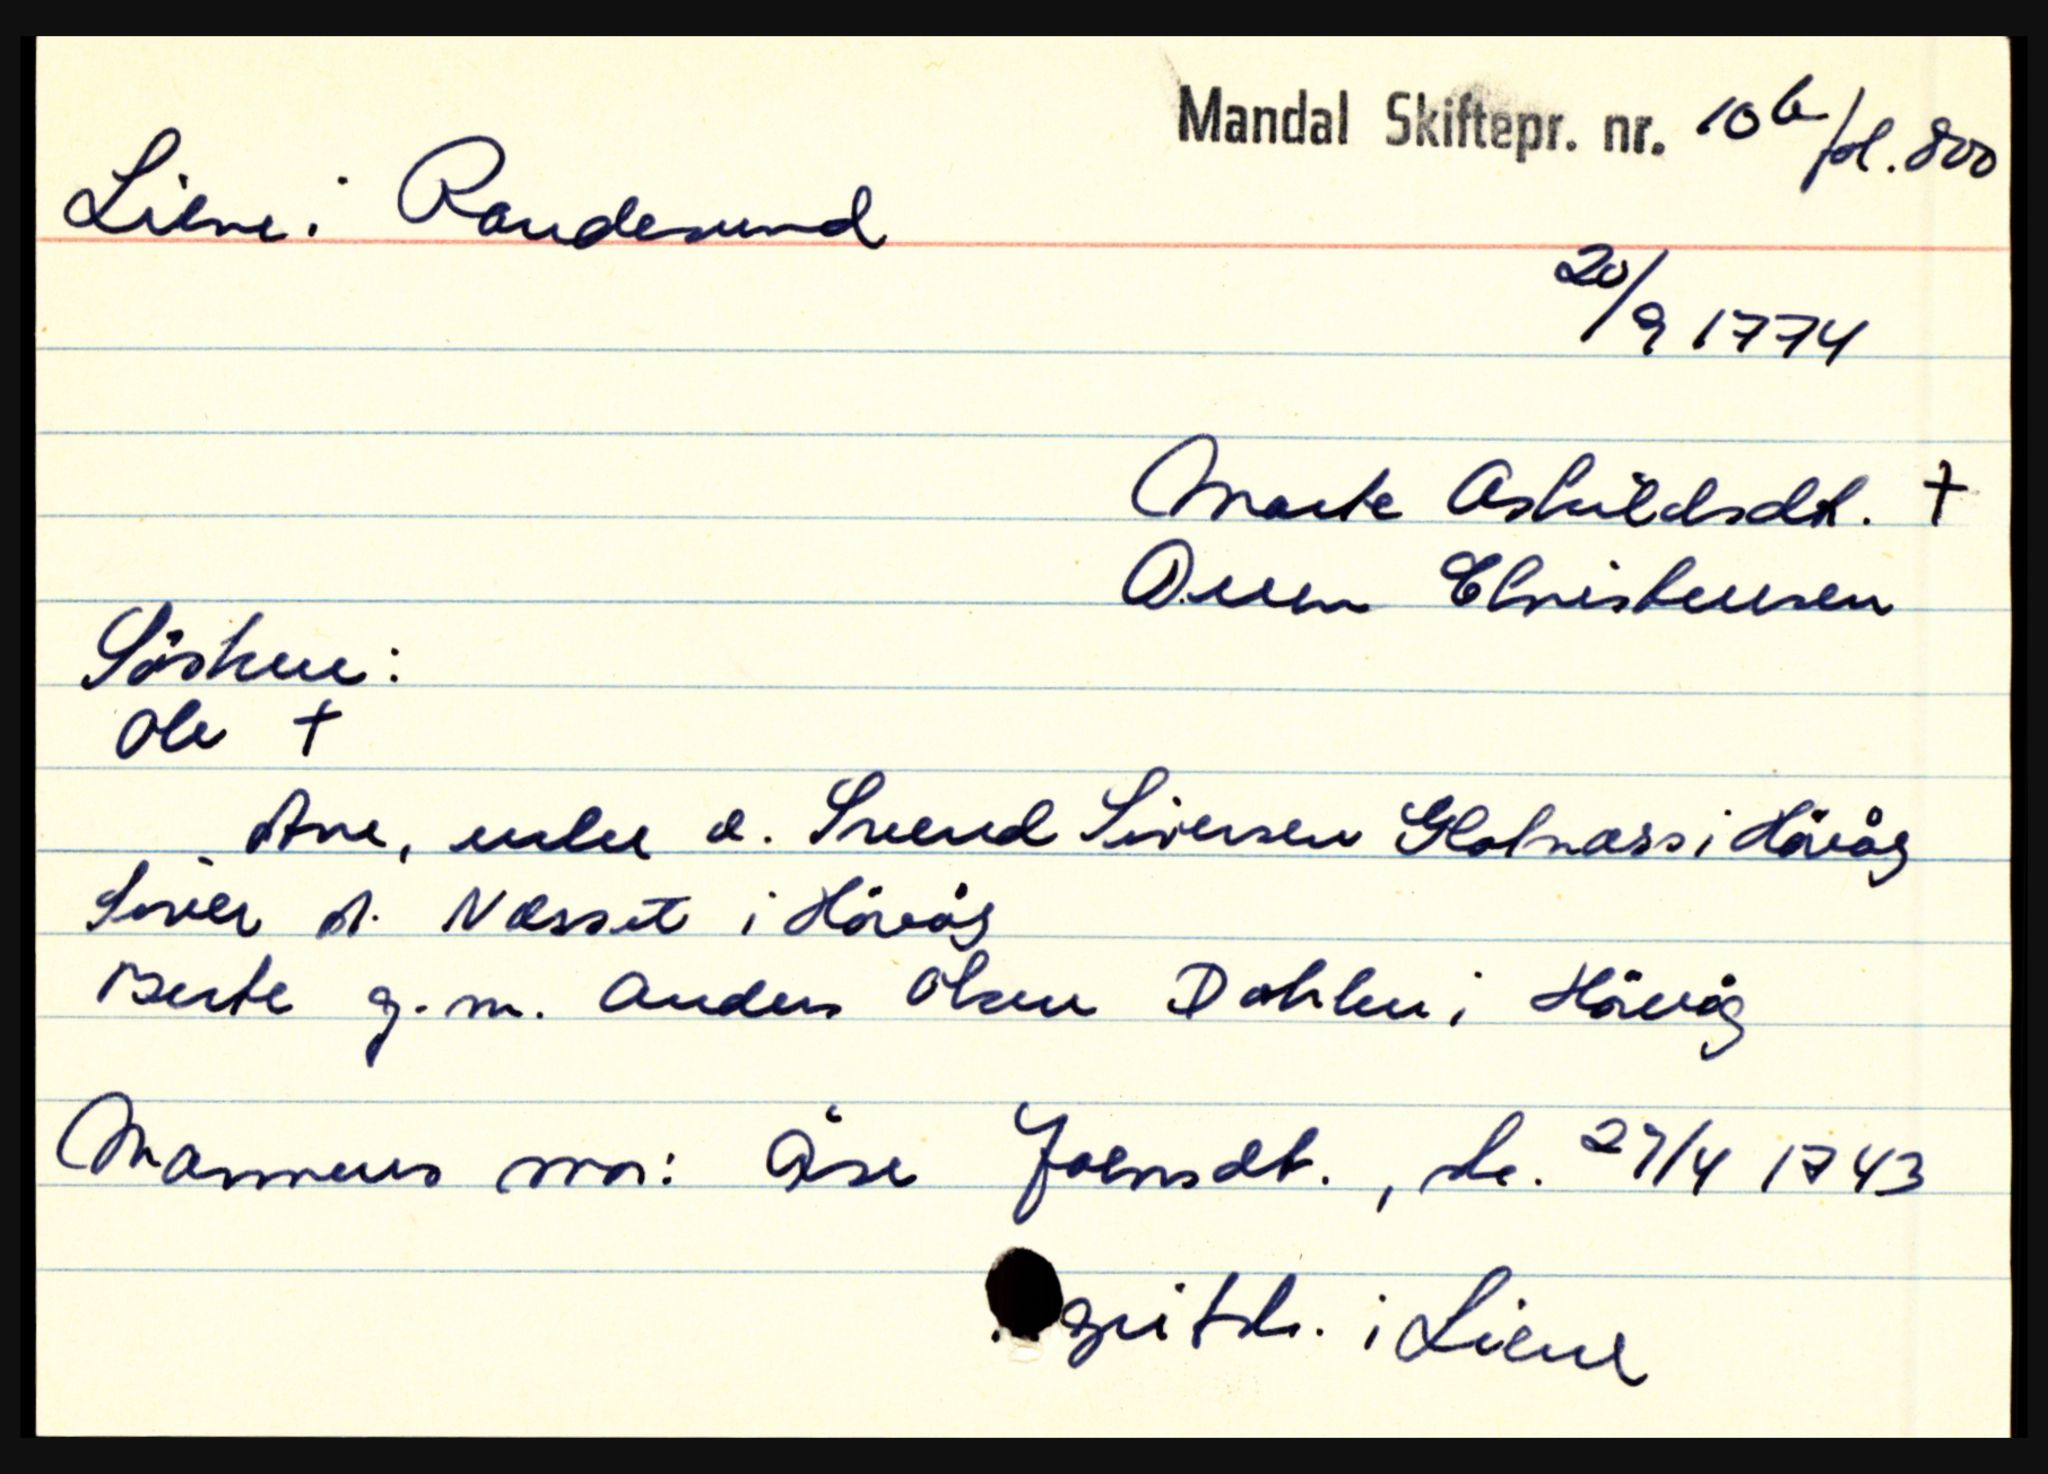 Mandal Skiftepr. nr. 10b/fol. 800
Liene i Randesund
20/9 1774
Marte Askildsdtr. †
Ouen Christensen
Sösken:
Ole †
Ane, enke e. Svend Siversen Glatnæss i Hövåg
Siver A. Næsset i Hövåg
Berte g. m. Anders Olsen Dahlen i Hövåg
Mannens mor: Åse Joensdt., sk. 27/4 1743
gitsk. i Liene